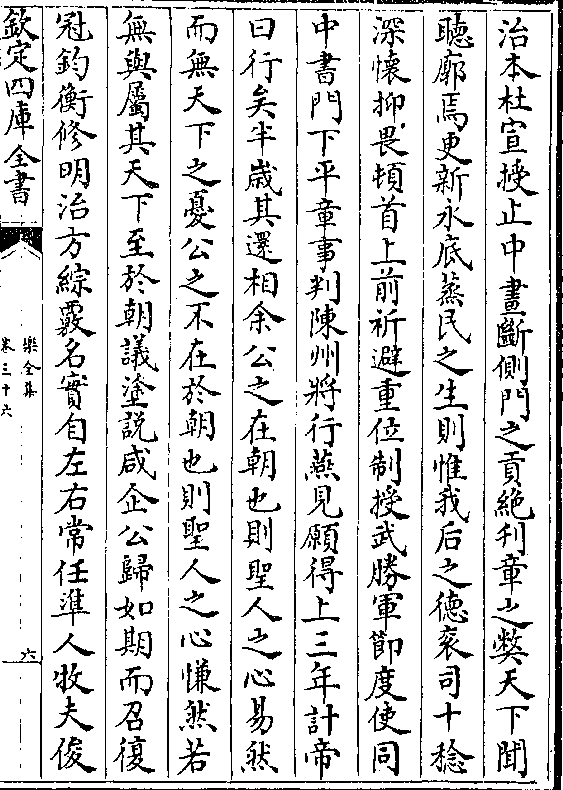 治本杜宣授止中畫斷側門之貢絶利章之弊天下聞
聴廓焉更新永底蒸民之生則惟我后之德衮司十稔
深懐抑畏頓首上前祈避重位制授武勝軍節度使同
中書門下平章事判陳州將行燕見願得上三年計帝
曰行矣半歳其還相余公之在朝也則聖人之心易然
而無天下之憂公之不在於朝也則聖人之心慊然若
無與屬其天下至於朝議塗説咸企公歸如期而召復
冠鈞衡修明治方綜覈名實自左右常任準人牧夫俊
欽定四庫全書
樂全集
卷三十六
六